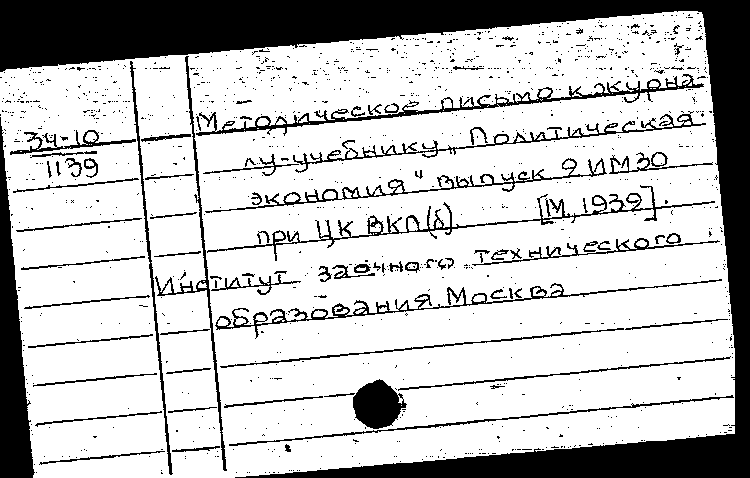 Методическое письмо к журна
34-10
лу-учебнику „Политическая
1139
экономия" выпуск 2 ИМЗО
при ЦК ВКП(б). [М., 1932].
Институт заочного технического
образования. Москва